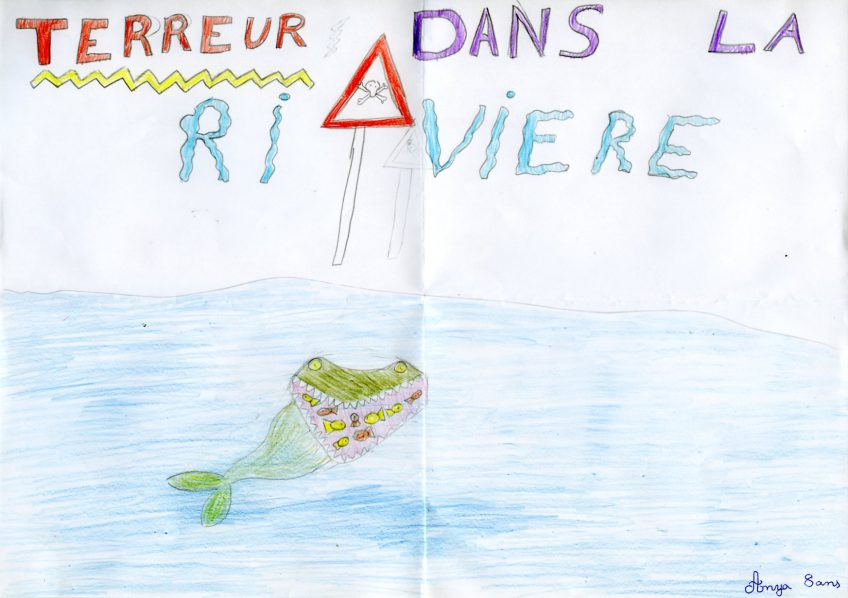 TERREUR DANS LA
RiViERE
Anya 8ans